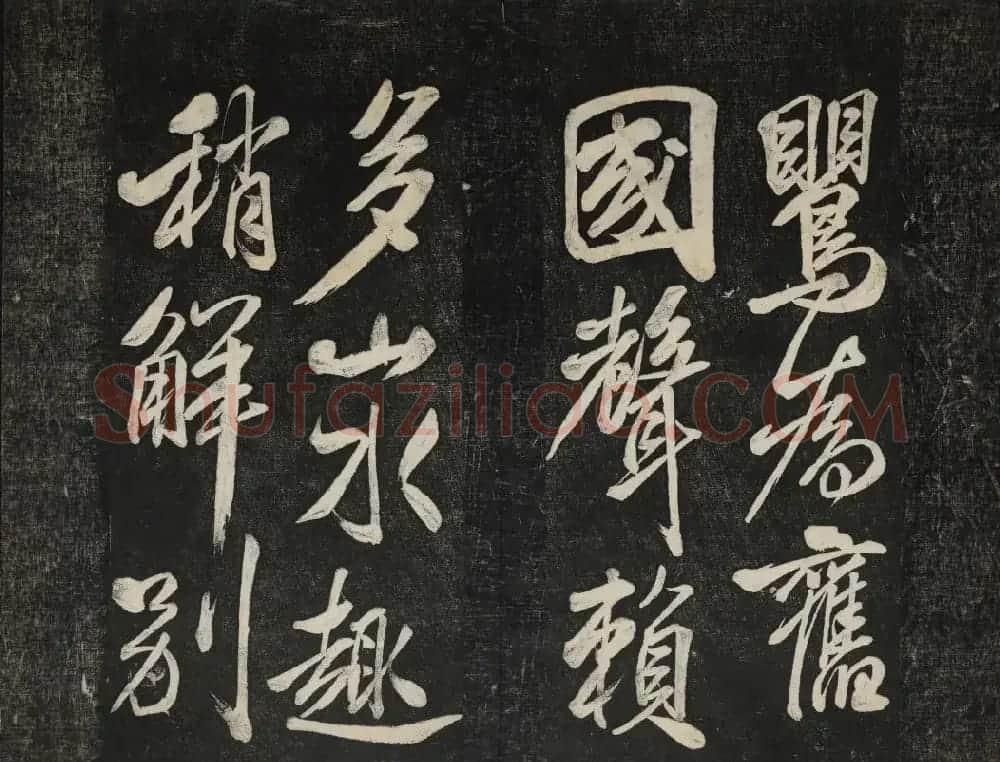 鸎為舊
國聲賴
多山水趣
稍解別
Shufaziliao.COM